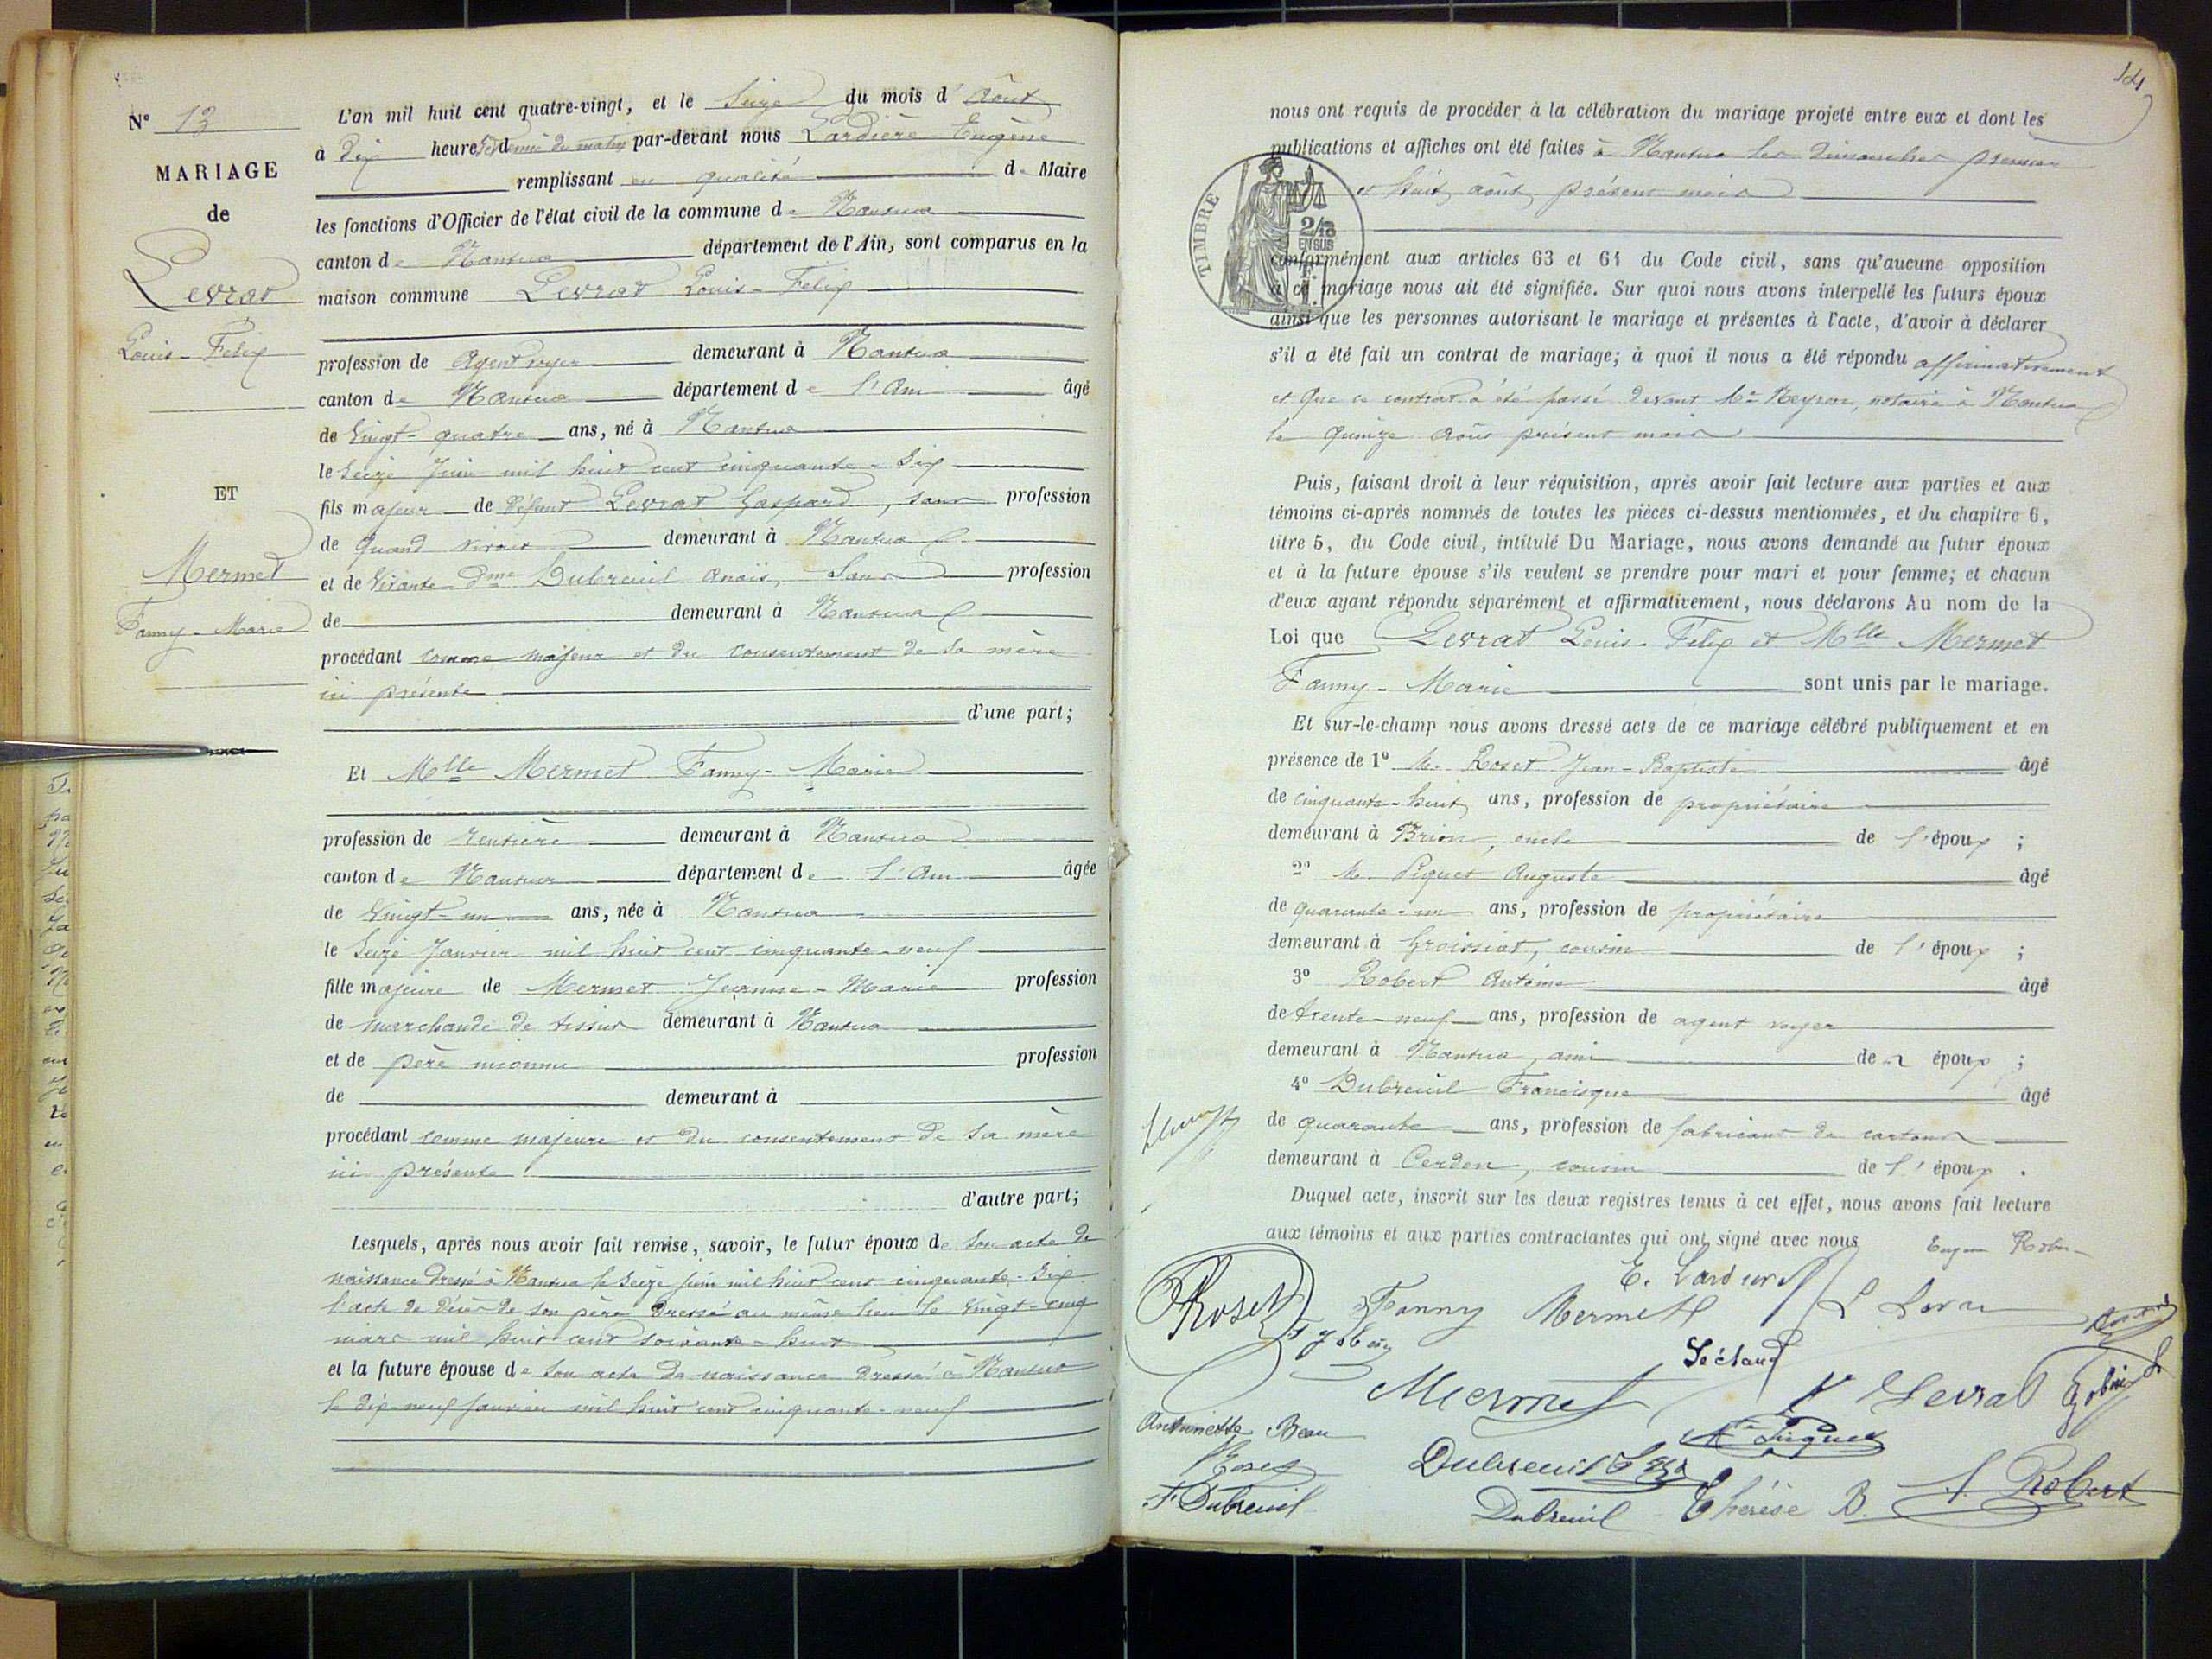 N° 13
MARIAGE
de
Levrat
Louis-Félix
ET
Mermet
Fanny-Marie
L'an mil huit cent quatre-vingt, et le Seize du mois d'Août
à dix heures et demie du matin par-devant nous Lardière Eugène
remplissant en qualité de Maire
les fonctions d'Officier de l'état civil de la commune de Nantua
canton de Nantua département de l'Ain, sont comparus en la
maison commune Levrat Louis-Félix
profession de Agent voyer demeurant à Nantua
canton de Nantua département de l'Ain âgé
de Vingt-quatre ans, né à Nantua
le Seize Juin mil huit cent cinquante-Six
fils majeur de défunt Levrat Gaspard, sans profession
de quand vivait demeurant à Nantua
et de Vivante Dme Dubreuil Anaïs, Sans profession
de demeurant à Nantua
procédant comme majeur et du consentement de Sa mère
ici présente
d'une part;
Et Mlle Mermet Fanny-Marie
profession de rentière demeurant à Nantua
canton de Nantua département de l'Ain âgée
de Vingt-un ans, née à Nantua
le Seize Janvier mil huit cent cinquante-neuf
fille majeure de Mermet Jeanne-Marie profession
de marchande de tissus demeurant à Nantua
et de père inconnu profession
de demeurant à
procédant comme majeure et du consentement de Sa mère
ici présente
d'autre part;
Lesquels, après nous avoir fait remise, savoir, le futur époux de Son acte de
naissance dressé à Nantua le Seize juin mil huit cent cinquante-Six
l'acte de décès de son père dressé au même lieu le Vingt-cinq
mars mil huit cent soixante-huit
et la future épouse de Son acte de naissance dressé à Nantua
le dix-neuf janvier mil huit cent cinquante-neuf
14
nous ont requis de procéder à la célébration du mariage projeté entre eux et dont les
publications et affiches ont été faites à Nantua les dimanches premier
et huit août, présent mois
TIMBRE
2/10
EN SUS
conformément aux articles 63 et 64 du Code civil, sans qu'aucune opposition
à ce mariage nous ait été signifiée. Sur quoi nous avons interpellé les futurs époux
ainsi que les personnes autorisant le mariage et présentes à l'acte, d'avoir à déclarer
s'il a été fait un contrat de mariage; à quoi il nous a été répondu affirmativement
et que ce contrat a été passé devant Me Neyron, notaire à Nantua
le quinze août présent mois
Puis, faisant droit à leur réquisition, après avoir fait lecture aux parties et aux
témoins ci-après nommés de toutes les pièces ci-dessus mentionnées, et du chapitre 6,
titre 5, du Code civil, intitulé Du Mariage, nous avons demandé au futur époux
et à la future épouse s'ils veulent se prendre pour mari et pour femme; et chacun
d'eux ayant répondu séparément et affirmativement, nous déclarons Au nom de la
Loi que Levrat Louis-Félix et Mlle Mermet
Fanny-Marie sont unis par le mariage.
Et sur-le-champ nous avons dressé acte de ce mariage célébré publiquement et en
présence de 1° M. Roset Jean-Baptiste âgé
de cinquante-huit ans, profession de propriétaire
demeurant à Brion, oncle de l'époux;
2° M. Piquet Auguste âgé
de quarante-un ans, profession de propriétaire
demeurant à Groissiat, cousin de l'époux;
3° Robert Antoine âgé
de trente-neuf ans, profession de agent voyer
demeurant à Nantua, ami des époux;
4° Dubreuil Francisque âgé
de quarante ans, profession de fabricant de cartons
demeurant à Cerdon, cousin de l'époux.
Duquel acte, inscrit sur les deux registres tenus à cet effet, nous avons fait lecture
aux témoins et aux parties contractantes qui ont signé avec nous
E. Lardière
Roset Fanny Mermet L. Levrat
Mermet Levrat
Antoinette Beau
Roset Dubreuil
F. Dubreuil Dubreuil Thérèse B. A. Robert